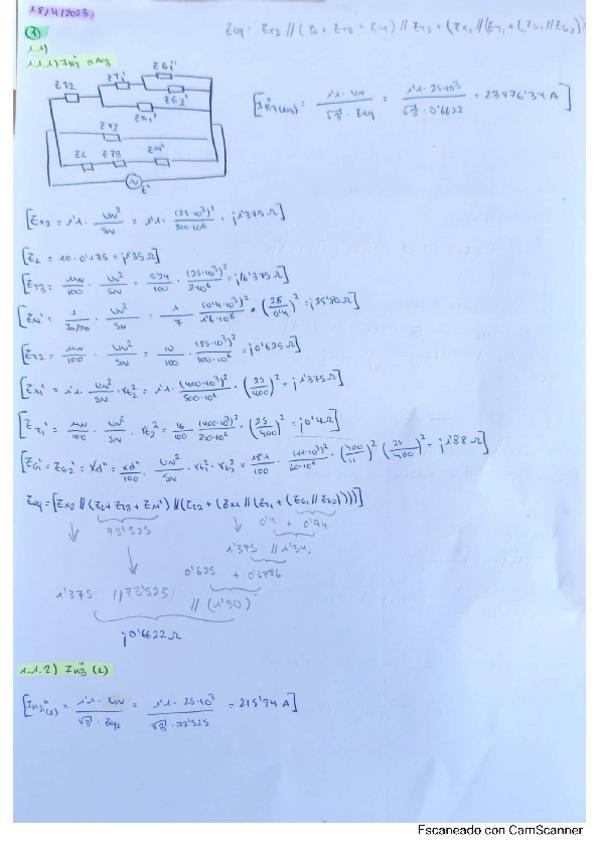 18/4/2023
Zeq: Zx2 // (ZL + ZT3 + ZM) // ZT2 + (Zx1 // (ZT1 + (ZG1 // ZG2)
1
1.1)
1.1.1) Ik3'' en B
ZT2 ZT1' ZG1'
ZG2'
Zx1'
Zx2
ZL ZT3 ZM'
[Ik3'' = 1'1·UN / √3·Zeq = 1'1·25·10³ / √3·0'6622 = 23976'34 A]
[Zx2 = 1'1 · UN²/SN = 1'1 · (25·10³)²/500·10⁶ = j1'375 Ω]
[ZL = 10·0'135 = j1'35 Ω]
[ZT3 = μN/100 · UN²/SN = 5'24/100 · (25·10³)²/2·10⁶ = j16'375 Ω]
[ZM' = 1/ · UN²/SN = 1/7 · (0'4·10³)²/1'6·10⁶ · (25/0'4)² = j55'80 Ω]
[ZT2 = μN/100 · UN²/SN = 10/100 · (25·10³)²/100·10⁶ = j0'625 Ω]
[Zx1' = 1'1 · UN²/SN · rt2² = 1'1 · (400·10³)²/500·10⁶ · (25/400)² = j1'375 Ω]
[ZT1' = μN/100 · UN²/SN · rt2² = 16/100 (400·10³)²/250·10⁶ · (25/400)² = j0'4 Ω]
[ZG1' = ZG2' = Xd'' = Xd''/100 · UN²/SN · rt1² · rt2² = 18'1/100 · (11·10³)²/60·10⁶ · (400/11)² (25/400)² = j1'88 Ω]
Zeq = [Zx2 // (ZL + ZT3 + ZM') // (ZT2 + (Zx1 // (ZT1 + (ZG1 // ZG2))))]
73'525 0'4 + 0'94
1'375 // 1'34
0'625 + 0'6786
1'375 // 73'525 // (1'30)
j0'6622 Ω
1.1.2) Ik3'' (L)
[Ik3''(L) = 1'1·UN / √3·ZeqL = 1'1·25·10³ / √3·73'525 = 215'94 A]
Escaneado con CamScanner